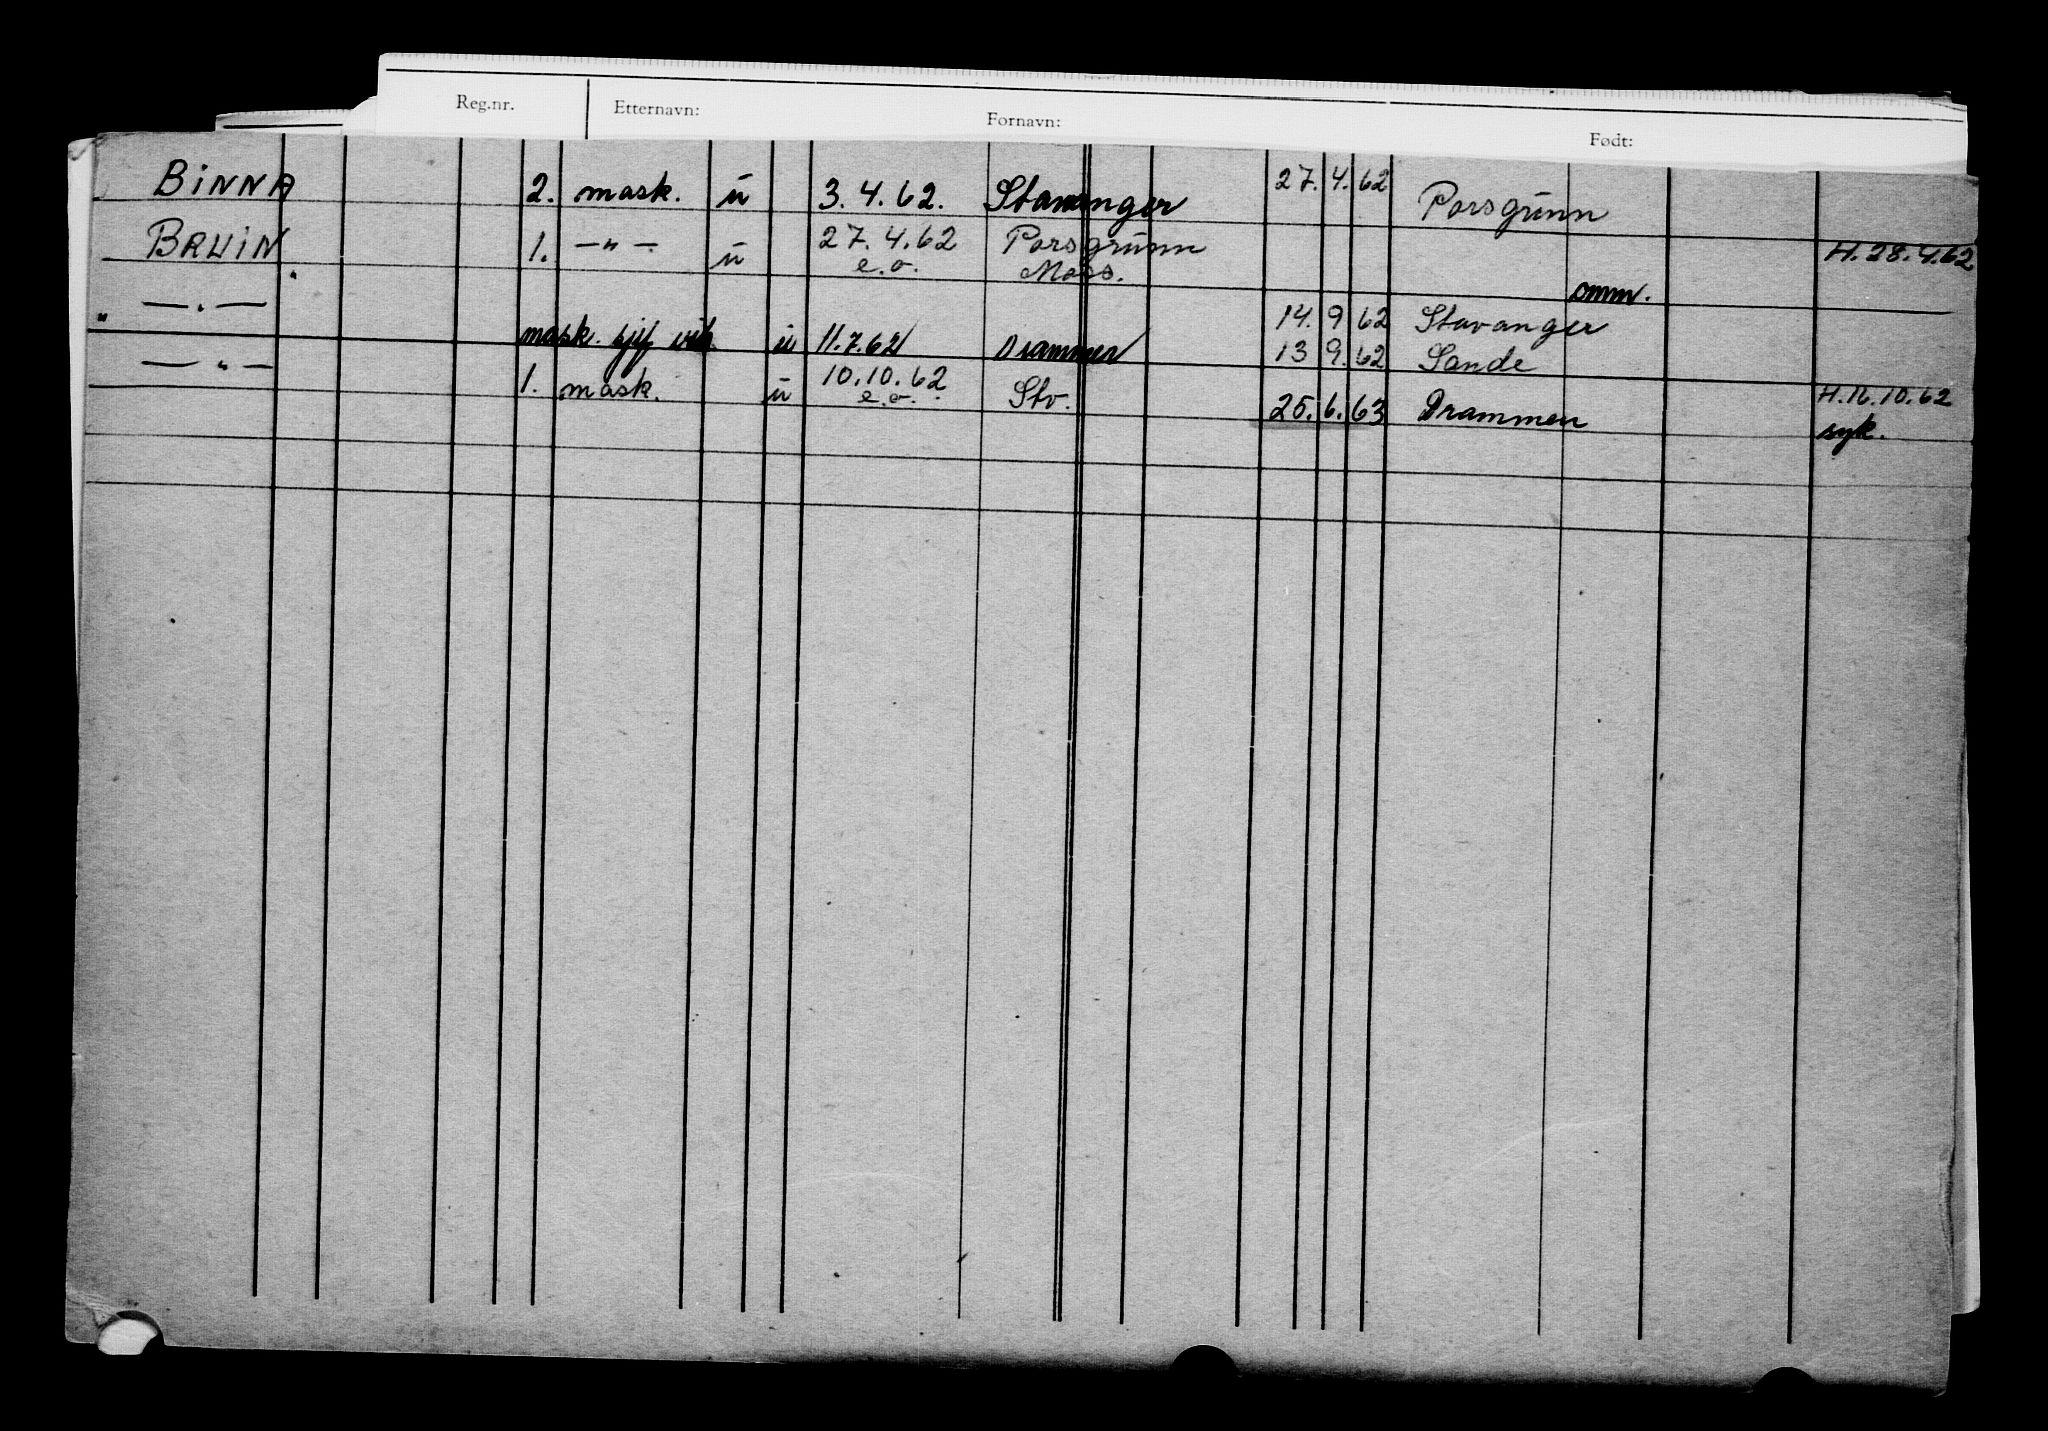 Reg.nr. Etternavn: Fornavn: Født:
BINNA 2. mask. u 3.4.62. Stavanger 27.4.62 Porsgrunn
BRUIN 1. —"— u 27.4.62 Porsgrunn H.28.4.62
e.o. Moss.
omm.
—"— 14.9.62 Stavanger
" mask. sjef vik. u 11.7.62 Drammen 13.9.62 Sande
—"— 1. mask. u 10.10.62 Stv. H.12.10.62
e.o. 25.6.63 Drammen syk.